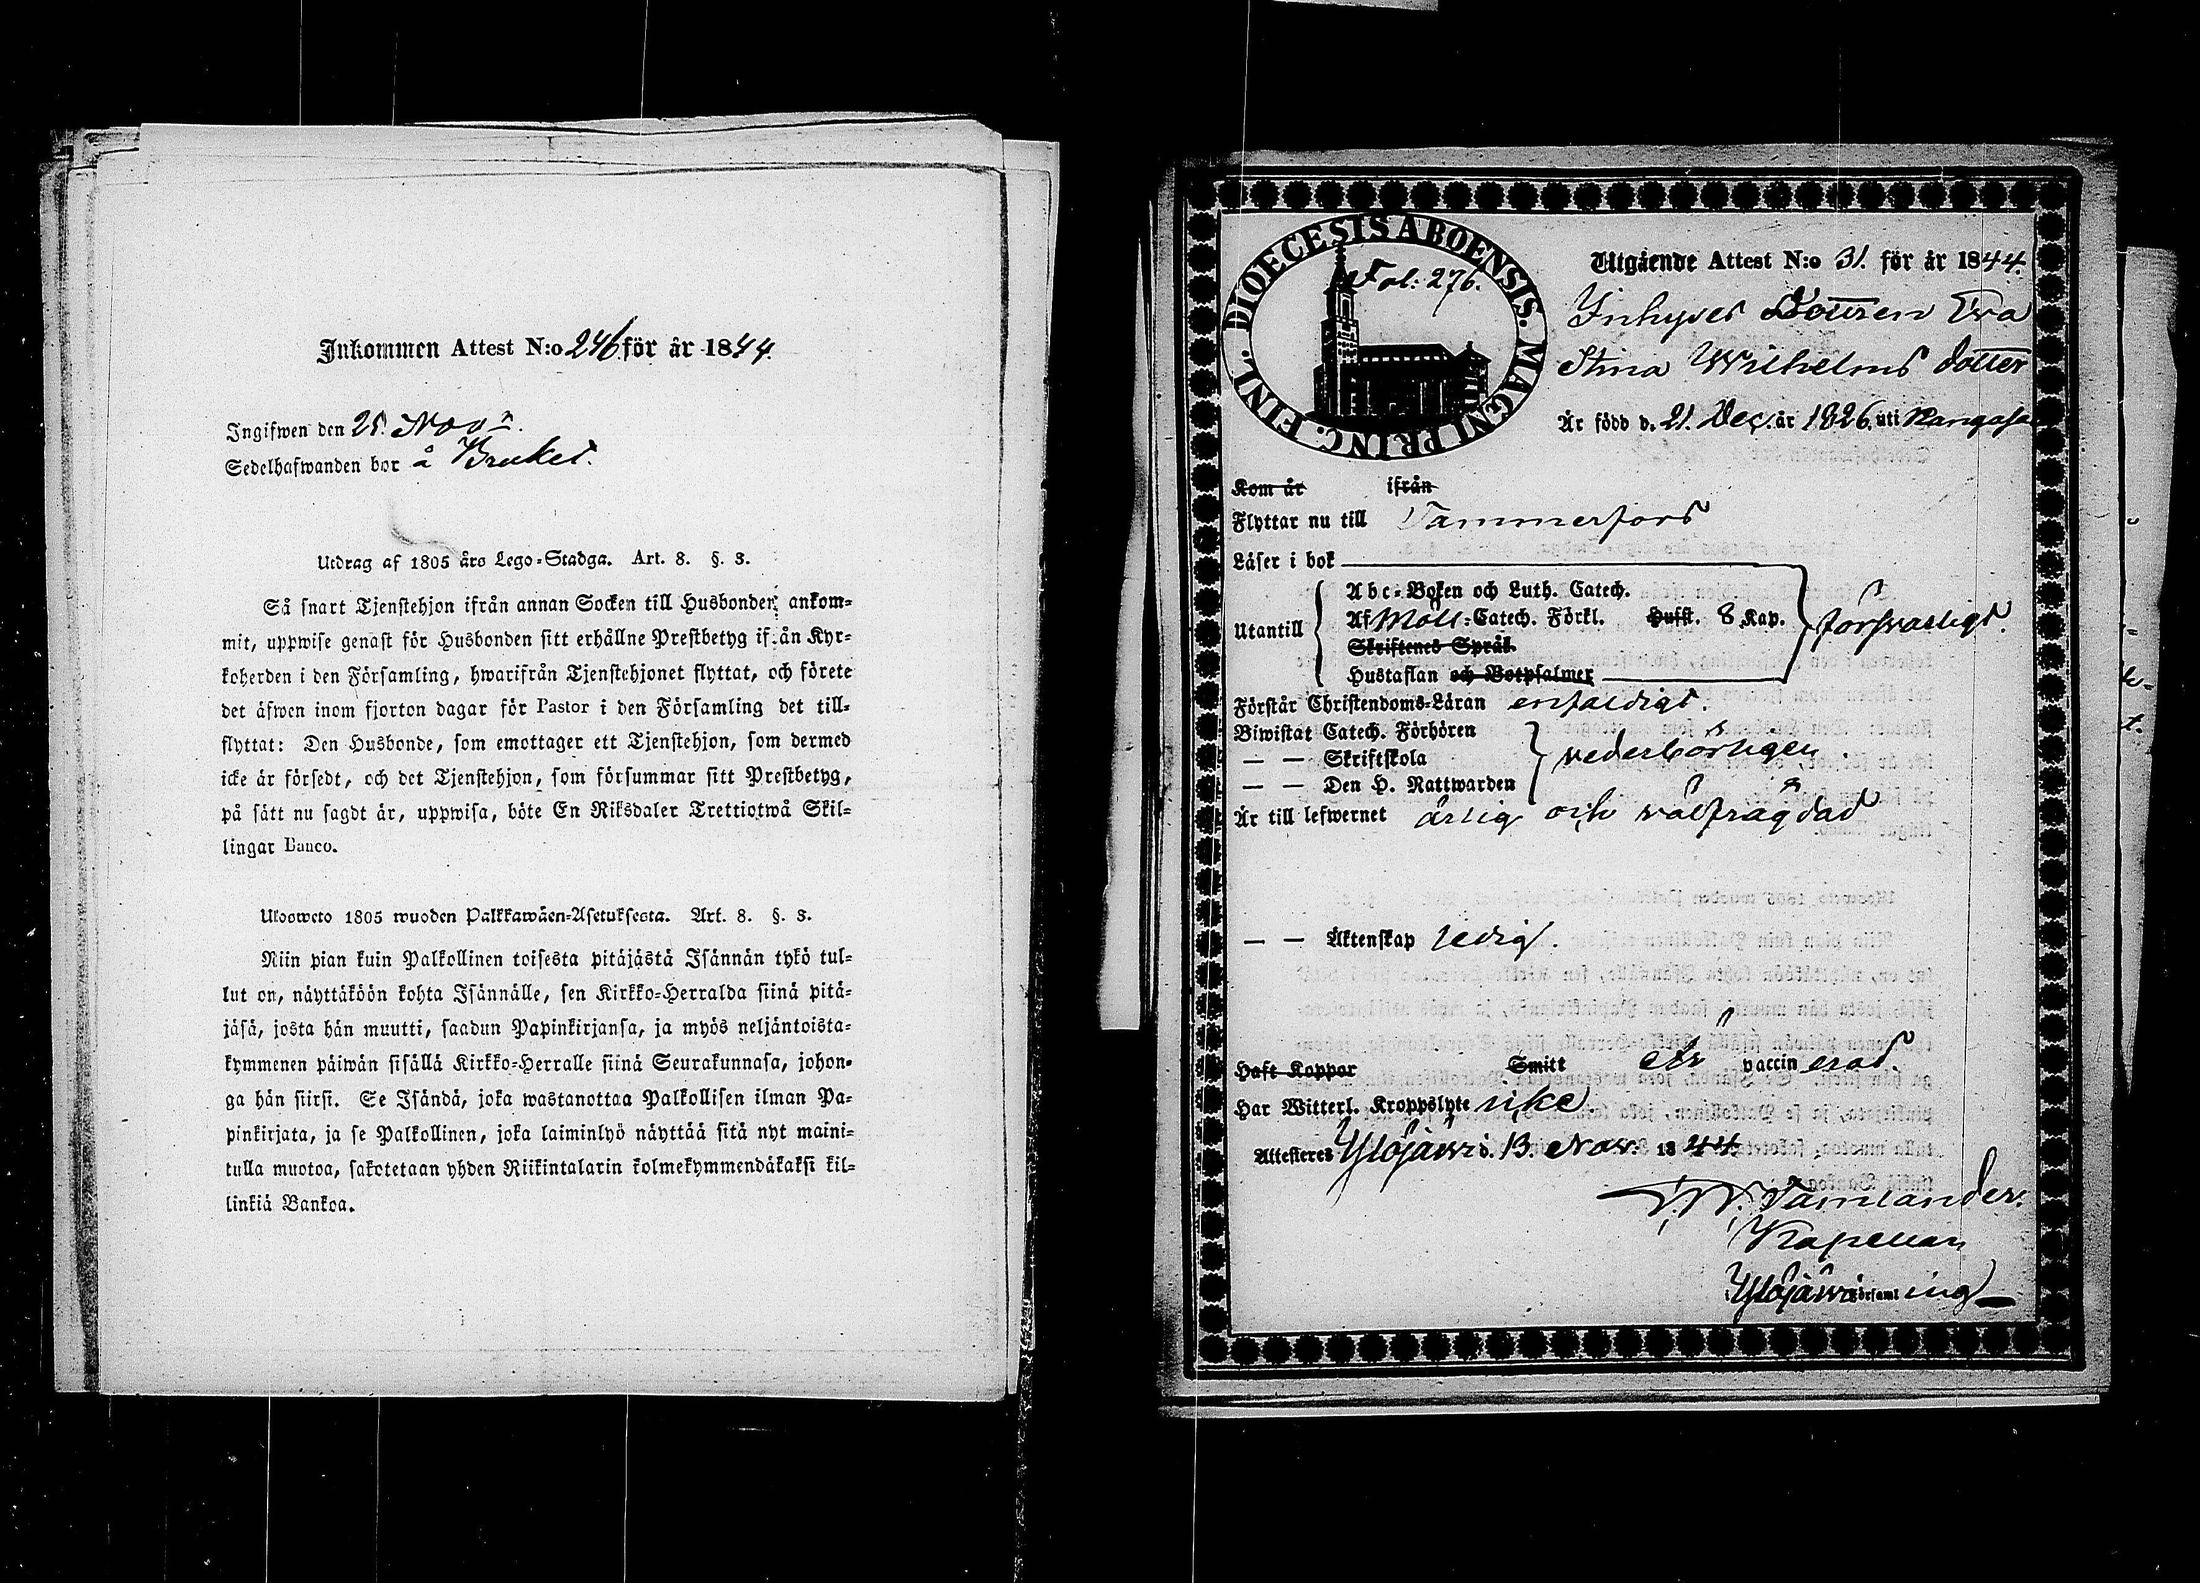 Inkommen Attest N:o 246 för år 1844.
Ingifwen den 25. Nov.
Sedelhafwanden bor å Bruket.
Utdrag af 1805 års Lego-Stadga. Art. 8. §. 3.
Så snart Tjenstehjon ifrån annan Socken till Husbonden ankom-
mit, uppwise genast för Husbonden sitt erhållne Prestbetyg ifrån Kyr-
koherden i den Församling, hwarifrån Tjenstehjonet flyttat, och förete
det äfwen inom fjorton dagar för Pastor i den Församling det till-
flyttat: Den Husbonde, som emottager ett Tjenstehjon, som dermed
icke är försedt, och det Tjenstehjon, som försummar sitt Prestbetyg,
på sätt nu sagdt är, uppwisa, böte En Riksdaler Trettiotwå Skil-
lingar Banco.
Ulosweto 1805 wuoden Palkkawäen-Asetuksesta. Art. 8. §. 3.
Niin pian kuin Palkollinen toisesta pitäjästä Isännän tykö tul-
lut on, näyttäköön kohta Isännälle, sen Kirkko-Herralda siinä pitä-
jäsä, josta hän muutti, saadun Papinkirjansa, ja myös neljäntoista-
kymmenen päiwän sisällä Kirkko-Herralle siinä Seurakunnasa, johon-
ga hän siirsi. Se Isändä, joka wastanottaa Palkollisen ilman Pa-
pinkirjata, ja se Palkollinen, joka laiminlyö näyttää sitä nyt maini-
tulla muotoa, sakotetaan yhden Riikintalarin kolmekymmendäkaksi kil-
linkiä Bankoa.
DIOECESIS ABOENSIS. MAGNI PRINC. FINL.
Fol: 276.
Utgående Attest N:o 31. för år 1844.
Inhyses Dottren Eva
Stina Wilhelms dotter
Är född d. 21. Dec. år 1826. uti Kangasa
Kom år ifrån
Flyttar nu till Tammerfors
Läser i bok
Utantill
Abc-Boken och Luth. Catech.
Af Möll: Catech. Förkl. Hufst. 8 Kap. försvarligt.
Skriftenes Språk.
Hustaflan och Botpsalmer
Förstår Christendoms-Läran enfaldigt.
Biwistat Catech. Förhören
— — Skriftskola vederbörligen
— — Den H. Nattwarden
Är till lefwernet ärlig och wälfrägdad
— — Äktenskap ledig.
Haft Koppor Smitt är vaccin erad.
Har Witterl. Kroppslyte icke
Attesteres Ylöjäwi d. 13. Nov. 1844.
Tamlander.
Kapellan
Ylöjäwi Församl ing